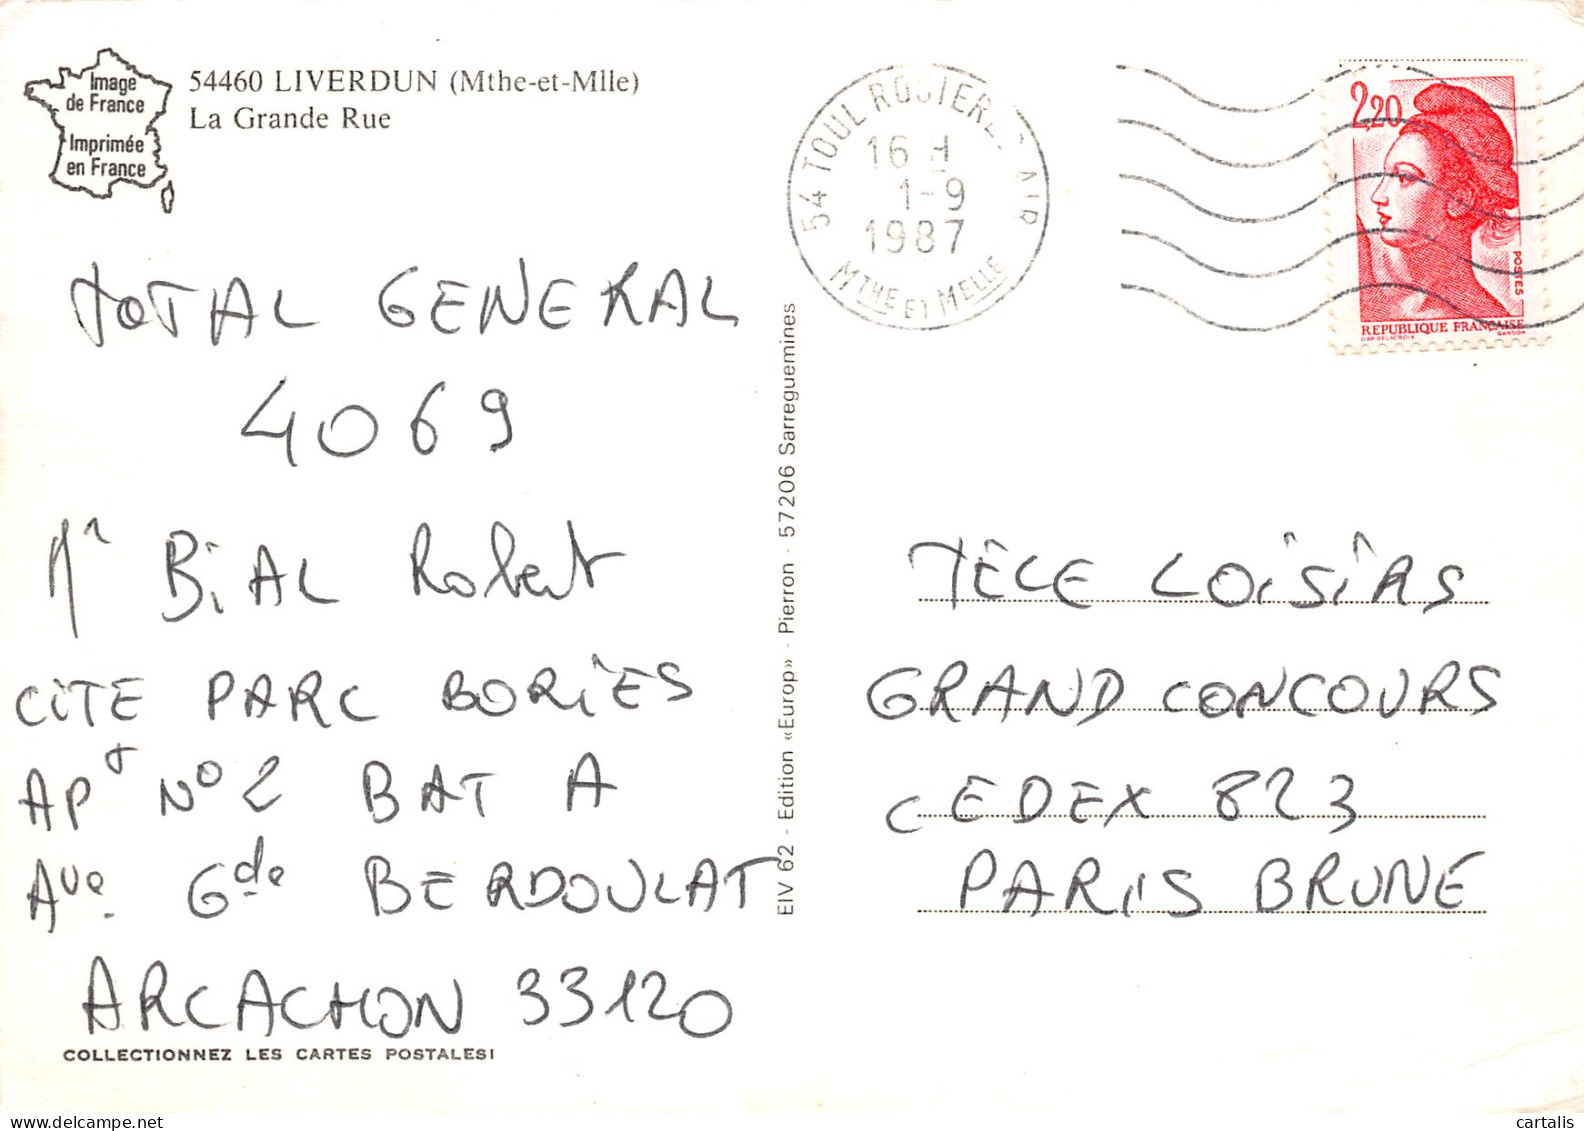 Image
de France
Imprimée
en France
54460 LIVERDUN (Mthe-et-Mlle)
La Grande Rue
54 TOUL ROSIERE AIR
16 H
1-9
1987
MTHE ET MELLE
2,20
POSTES
REPUBLIQUE FRANÇAISE
D'AP. DELACROIX GANDON
TOTAL GENERAL
4069
Mr BiAL Robert
CiTE PARC BORiES
APt No 2 BAT A
Ave Gde BERDOULAT
ARCACHON 33120
COLLECTIONNEZ LES CARTES POSTALES!
EIV 62 - Edition «Europ» - Pierron - 57206 Sarreguemines
TÈLE LOiSiRS
GRAND CONCOURS
CEDEX 823
PARiS BRUNE
cartalis